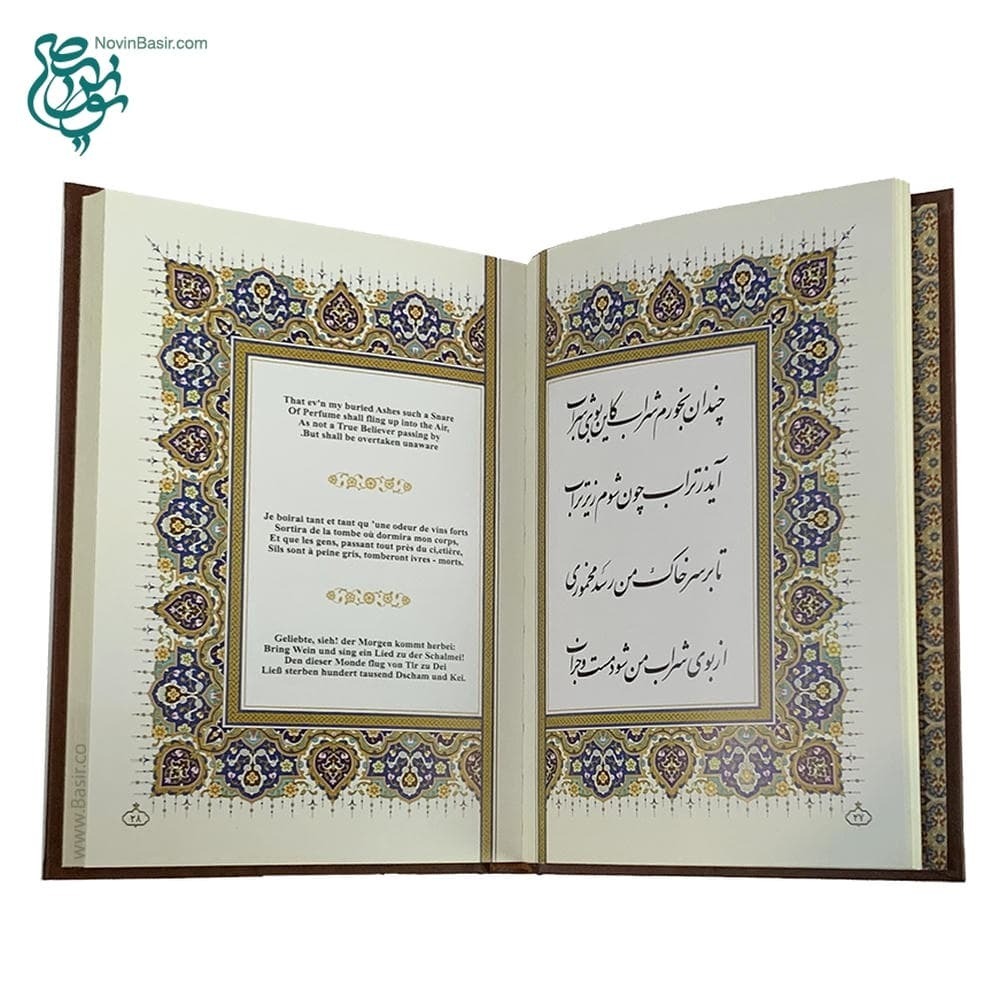 NovinBasir.com
چندان بخورم شراب کاین بوی شراب
آید ز تراب چون شوم زیر تراب
تا بر سر خاک من رسد مخموری
از بوی شراب من شود مست و خراب
۲۷
That ev'n my buried Ashes such a Snare
Of Perfume shall fling up into the Air,
As not a True Believer passing by
.But shall be overtaken unaware
Je boirai tant et taut qu 'une odeur de vins forts
Sortira de la tombe où dormira mon corps,
Et que les gens, passant tout près du ci,etière,
Sils sont à peine gris, tomberont ivres - morts.
Geliebte, sieh! der Morgen kommt herbei:
Bring Wein und sing ein Lied zu der Schalmei!
Den dieser Monde flug von Tir zu Dei
Ließ sterben hundert tausend Dscham und Kei.
۲۸
www.Basir.co